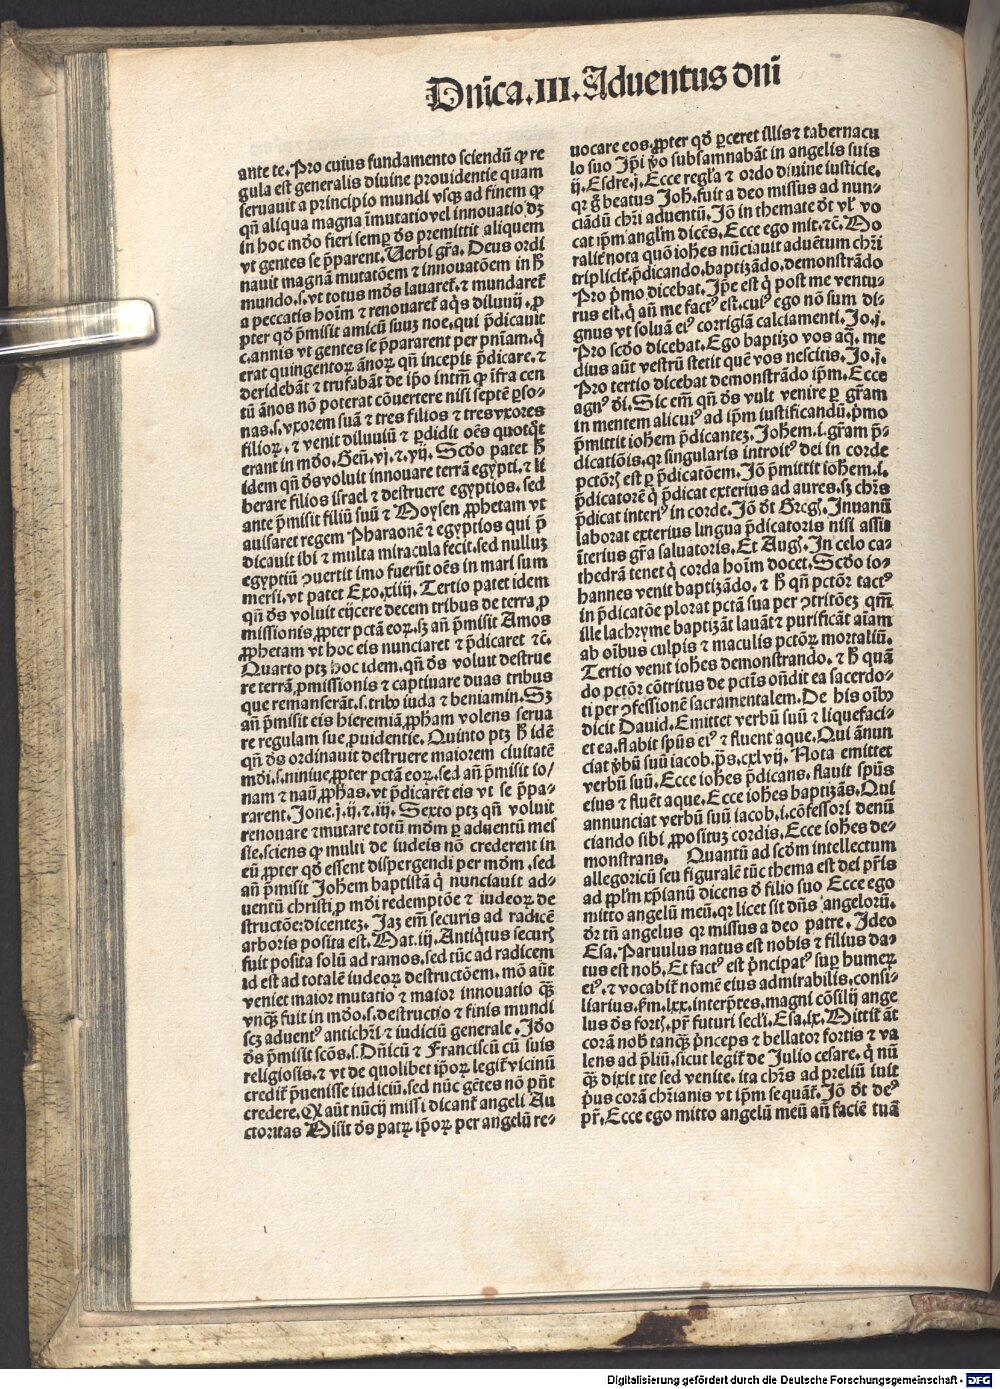 Dn̄ica.III.Aduentus dn̄i
ante te. Pro cuius fundamento sciendū ꝙ re
gula est generalis diuine prouidentie quam
seruauit a principio mundi vsqꝫ ad finem ꝙ
qn̄ aliqua magna īmutatio vel innouatio dꝫ
in hoc mūdo fieri semꝑ ds̄ premittit aliquem
vt gentes se p̄parent. Uerbi gr̄a. Deus ordi
nauit magnā mutatōem ⁊ innouatōem in h̄
mundo.s.vt totus mūds lauaret᷑.⁊ mundaret᷑
a peccatis hoīm ⁊ renouaret᷑ aq̄s diluuij.ꝓ
pter qd̄ p̄misit amicū suuꝫ noe.qui p̄dicauit
c.annis vt gentes se p̄pararent per pn̄iam.q̇
erat quingentoꝝ ānoꝝ qn̄ incepit p̄dicare.⁊
deridebāt ⁊ trufabāt de ip̄o intm̄ ꝙ īfra cen
tū ānos nō poterat cōuertere nisi septē ꝑso-
nas.s.vxorem suā ⁊ tres filios ⁊ tres vxores
filioꝝ.⁊ venit diluuiū ⁊ ꝑdidit oēs quotq̄t
erant in mūdo. Gen̄.vj.⁊.vij. Scd̄o patet h̄
idem qn̄ ds̄ voluit innouare terrā egypti.⁊ li
berare filios israel ⁊ destruere egyptios.sed
ante p̄misit filiū suū ⁊ Moysen ꝓphetam vt
auisaret regem Pharaonē ⁊ egyptios qui p̄
dicauit ibi ⁊ multa miracula fecit.sed nulluꝫ
egyptiū ꝯuertit imo fuerūt oēs in mari sum
mersi.vt patet Exo.xiiij. Tertio patet idem
qn̄ ds̄ voluit eijcere decem tribus de terra ꝓ
missionis ꝓpter pctā eoꝝ.sꝫ an̄ p̄misit Amos
ꝓphetam vt hoc eis nunciaret ⁊ p̄dicaret ⁊c̄.
Quarto ptꝫ hoc idem.qn̄ ds̄ voluit destrue
re terrā ꝓmissionis ⁊ captiuare duas tribus
que remanserāt.s.tribꝰ iuda ⁊ beniamin. Sꝫ
an̄ p̄misit eis hieremiā ꝓpham volens serua
re regulam sue ꝓuidentie. Quinto ptꝫ h̄ idē
qn̄ ds̄ ordinauit destruere maiorem ciuitatē
mūdi.s.niniue ꝓpter pctā eoꝝ.sed an̄ p̄misit io/
nam ⁊ naū ꝓphas.vt p̄dicarēt eis vt se p̄pa-
rarent. Jone.j.ij.⁊.iij. Sexto ptꝫ qn̄ voluit
renouare ⁊ mutare totū mūdm ꝑ aduentū mes
sie.sciens ꝙ multi de iudeis nō crederent in
eū ꝓpter qd̄ essent dispergendi per mūdm.sed
an̄ p̄misit Joh̄em baptistā q̇ nunciauit ad-
uentū christi ꝓ mūdi redemptōe ⁊ iudeoꝝ de
structōe:dicentez. Jaꝫ em̄ securis ad radicē
arboris posita est. Mat.iij. Antiq̇tus securꝭ
fuit posita solū ad ramos.sed tūc ad radicem
id est ad totalē iudeoꝝ destructōem.mō aūt
veniet maior mutatio ⁊ maior innouatio q̄ꝫ
vnqꝫ fuit in mūdo.s.destructio ⁊ finis mundi
scꝫ aduentꝰ antichr̄i ⁊ iudiciū generale. Jdo
ds̄ p̄misit scōs.s. Dn̄icū ⁊ Franciscū cū suis
religiosis.⁊ vt de quolibet ip̄oꝝ legit᷑ vicinū
credit᷑ p̄uenisse iudiciū.sed nūc gētes nō pn̄t
credere. Qꝫ aūt nūcij missi dicant᷑ angeli Au
ctoritas Misit ds̄ patꝝ ip̄oꝝ per angelū re-
uocare eos.ꝓpter qd̄ ꝑceret illis ⁊ tabernacu
lo suo Jp̄i v̄o subsannabāt in angelis suis
ij. Esdre.j. Ecce regl̄a ⁊ ordo diuine iusticie.
qꝛ ḡ beatus Joh̄.fuit a deo missus ad nun-
ciādū chr̄i aduentū. Jō in themate dr̄ vl̓ vo
cat ip̄m angl̄m dicēs. Ecce ego mit.⁊c̄. Mo
ralit᷑ nota quō ioh̄es nūciauit aduētum chr̄i
triplicit᷑.p̄dicando.baptizādo.demonstrādo
Pro p̄mo dicebat. Jp̄e est q̇ post me ventu-
rus est.q̇ an̄ me factꝰ est.cuiꝰ ego nō sum di-
gnus vt soluā eiꝰ corrigiā calciamenti. Jo.j.
Pro scd̄o dicebat. Ego baptizo vos aq̄. me
dius aūt vestrū stetit quē vos nescitis. Jo.j.
Pro tertio dicebat demonstrādo ip̄m. Ecce
agnꝰ di. Sic em̄ qn̄ ds̄ vult venire ꝑ gr̄am
in mentem alicuiꝰ ad ip̄m iustificandū.p̄mo
p̄mittit ioh̄em p̄dicantez. Joh̄em.i.gr̄am p̄-
dicatiōis.qꝛ singularis introitꝰ dei in corde
pctōrꝭ est ꝑ p̄dicatōem. Jō p̄mittit ioh̄em.i.
p̄dicatorē q̇ p̄dicat exterius ad aures.sꝫ chr̄s
p̄dicat interiꝰ in corde. Jō dt̄ Gregꝭ. Jnuanū
laborat exterius lingua p̄dicatoris nisi assit
īterius gr̄a saluatoris. Et Augꝭ. Jn celo ca-
thedrā tenet q̇ corda hoīm docet. Scd̄o io-
hannes venit baptizādo.⁊ h̄ qn̄ pctōr tactꝰ
in p̄dicatōe plorat pctā sua per ꝯtritōez qm̄
ille lachryme baptizāt lauāt ⁊ purificāt aīam
ab oībus culpis ⁊ maculis pctōꝝ mortaliū.
Tertio venit ioh̄es demonstrando.⁊ h̄ quā
do pctōr cōtritus de pctīs on̄dit ea sacerdo-
ti per ꝯfessionē sacramentalem. De his oībꝰ
dicit Dauid. Emittet verbū suū ⁊ liquefaci-
et ea.flabit spūs eiꝰ ⁊ fluent aque. Qui ānun
ciat v̄bū suū iacob.p̄s.cxlvij. Nota emittet
verbū suū. Ecce ioh̄es p̄dicans.flauit spūs
eius ⁊ fluēt aque. Ecce ioh̄es baptizās. Qui
annunciat verbū suū iacob.i.cōfessori denū
ciando sibi ꝓpositꝫ cordis. Ecce ioh̄es de-
monstrans. Quantū ad scd̄m intellectum
allegoricū seu figuralē tūc thema est dei pr̄is
ad ppl̄m xp̄ianū dicens d̄ filio suo Ecce ego
mitto angelū meū.qꝛ licet sit dn̄s angelorū.
dr̄ tn̄ angelus qꝛ missus a deo patre. Jdeo
Esa. Paruulus natus est nobis ⁊ filius da-
tus est nob̄. Et factꝰ est p̄ncipatꝰ suꝑ humeꝝ
eiꝰ.⁊ vocabit᷑ nomē eius admirabilis.consi-
liarius.ẜm.lxx.interp̄tes.magni cōsilij ange
lus ds̄ fortꝭ.pr̄ futuri secl̓i. Esa.ix. Mittit᷑ āt
corā nob̄ tanqꝫ p̄nceps ⁊ bellator fortis ⁊ va
lens ad p̄liū.sicut legit᷑ de Julio cesare.q̇ nū
q̄ꝫ dixit ite sed venite.ita chr̄s ad preliū iuit
p̄us corā chr̄ianis vt ip̄m sequāt᷑. Jō dt̄ deꝰ
pr̄. Ecce ego mitto angelū meū an̄ faciē tuā
Digitalisierung gefördert durch die Deutsche Forschungsgemeinschaft - DFG